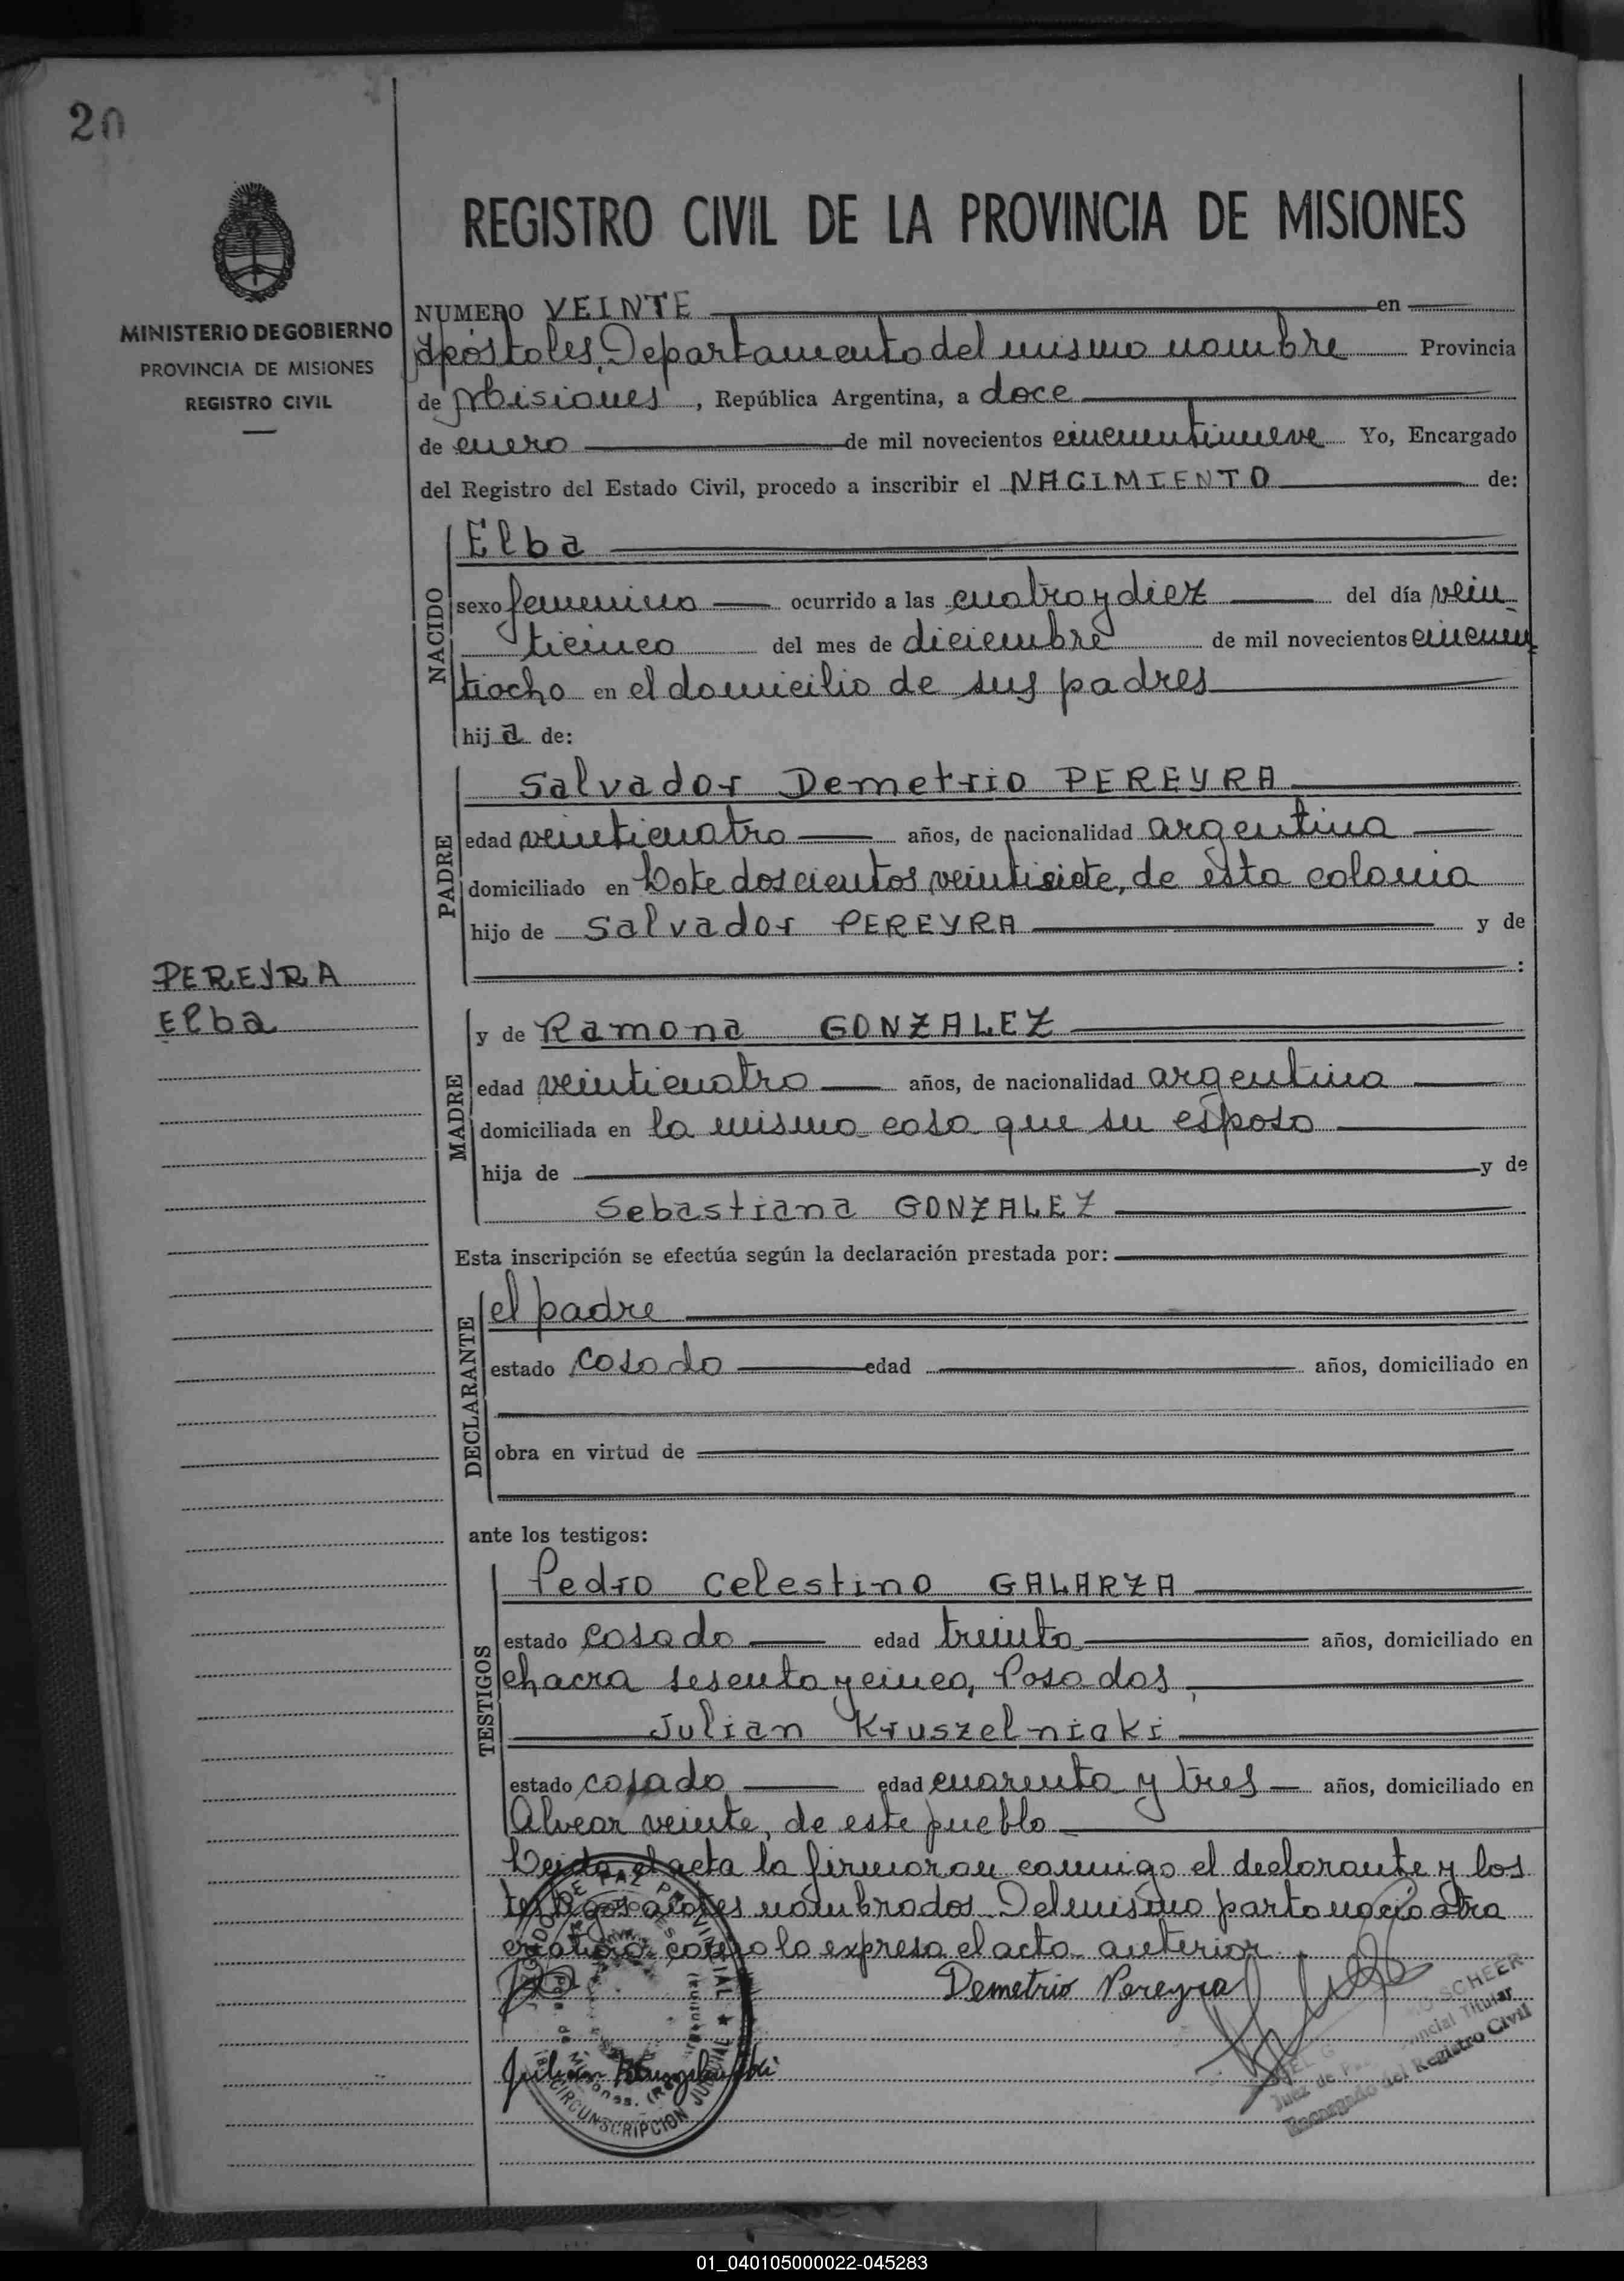 20
MINISTERIO DE GOBIERNO
PROVINCIA DE MISIONES
REGISTRO CIVIL
REGISTRO CIVIL DE LA PROVINCIA DE MISIONES
NUMERO VEINTE en
Apóstoles, Departamento del mismo nombre Provincia
de Misiones, República Argentina, a doce
de enero de mil novecientos cincuentinueve Yo, Encargado
del Registro del Estado Civil, procedo a inscribir el NACIMIENTO de:
NACIDO
Elba
sexo femenino ocurrido a las cuatro y diez del día vein-
ticinco del mes de diciembre de mil novecientos cincuen
tiocho en el domicilio de sus padres
hija de:
PADRE
Salvador Demetrio PEREYRA
edad veinticuatro años, de nacionalidad argentina
domiciliado en Lote doscientos veintisiete, de esta colonia
hijo de Salvador PEREYRA y de
:
PEREYRA
Elba
MADRE
y de Ramona GONZALEZ
edad veinticuatro años, de nacionalidad argentina
domiciliada en la misma casa que su esposo
hija de y de
Sebastiana GONZALEZ
Esta inscripción se efectúa según la declaración prestada por:
DECLARANTE
el padre
estado casado edad años, domiciliado en
obra en virtud de
ante los testigos:
TESTIGOS
Pedro Celestino GALARZA
estado casado edad treinta años, domiciliado en
chacra sesenta y cinco, Posadas
Julian Kruszelnicki
estado casado edad cuarenta y tres años, domiciliado en
Alvear veinte, de este pueblo
Leida el acta la firmaron conmigo el declarante y los
testigos antes nombrados. Del mismo parto nació otra
criatura como lo expresa el acta anterior.
Demetrio Pereyra
Julian
JUZGADO DE PAZ PROVINCIAL
CIRCUNSCRIPCION JUDICIAL
SCHEER
Titular
Juez de
Encargado del Registro Civil
01_040105000022-045283